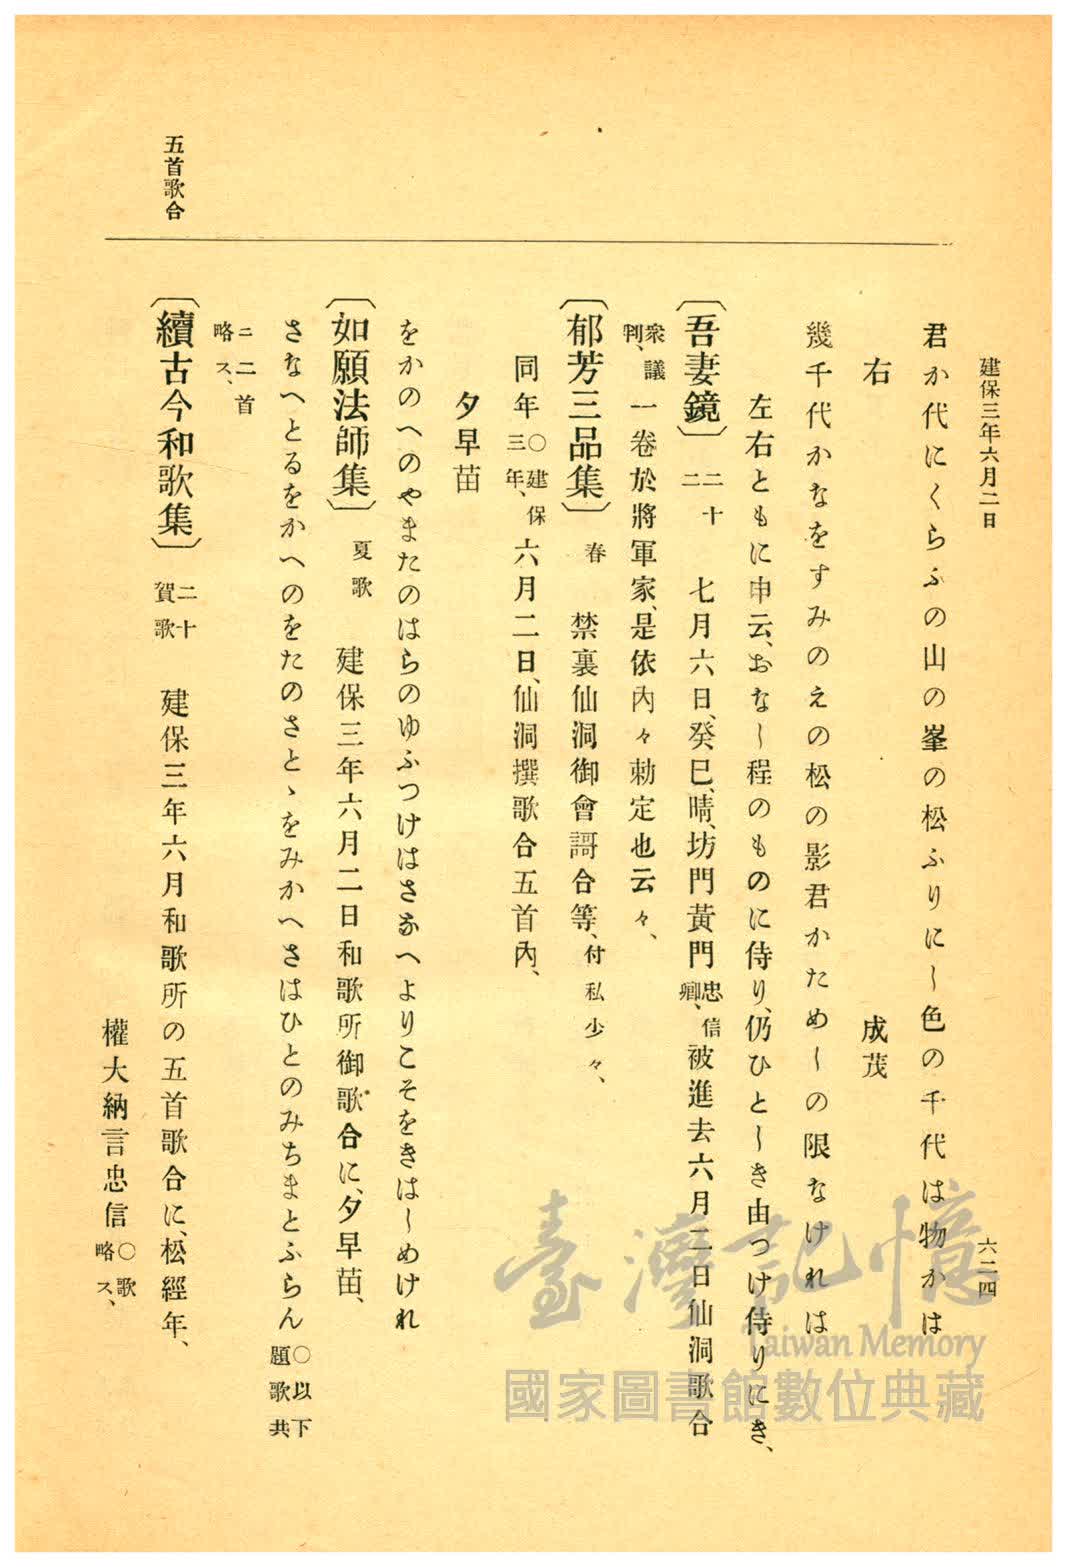 建保三年六月二日
六二四
君か代にくらふの山の峯の松ふりにし色の千代は物かは
右 成茂
幾千代かなをすみのえの松の影君かためしの限なけれは
左右ともに申云、おなし程のものに侍り、仍ひとしき由つけ侍りにき、
〔吾妻鏡〕 二十二 七月六日、癸巳、晴、坊門黃門忠信卿、被進去六月二日仙洞歌合
衆議判、一卷於將軍家、是依內々勅定也云々、
〔郁芳三品集〕 春 禁裏仙洞御會謌合等、付私少々、
同年〇建保三年、六月二日、仙洞撰歌合五首內、
夕早苗
をかのへのやまたのはらのゆふつけはさなへよりこそをきはしめけれ
〔如願法師集〕 夏歌 建保三年六月二日和歌所御歌合に、夕早苗、
さなへとるをかへのをたのさとゝをみかへさはひとのみちまとふらん〇以下題歌共
ニ二首略ス、
〔續古今和歌集〕 二十賀歌 建保三年六月和歌所の五首歌合に、松經年、
權大納言忠信〇歌略ス、
五首歌合
臺灣記憶
Taiwan Memory
國家圖書館數位典藏